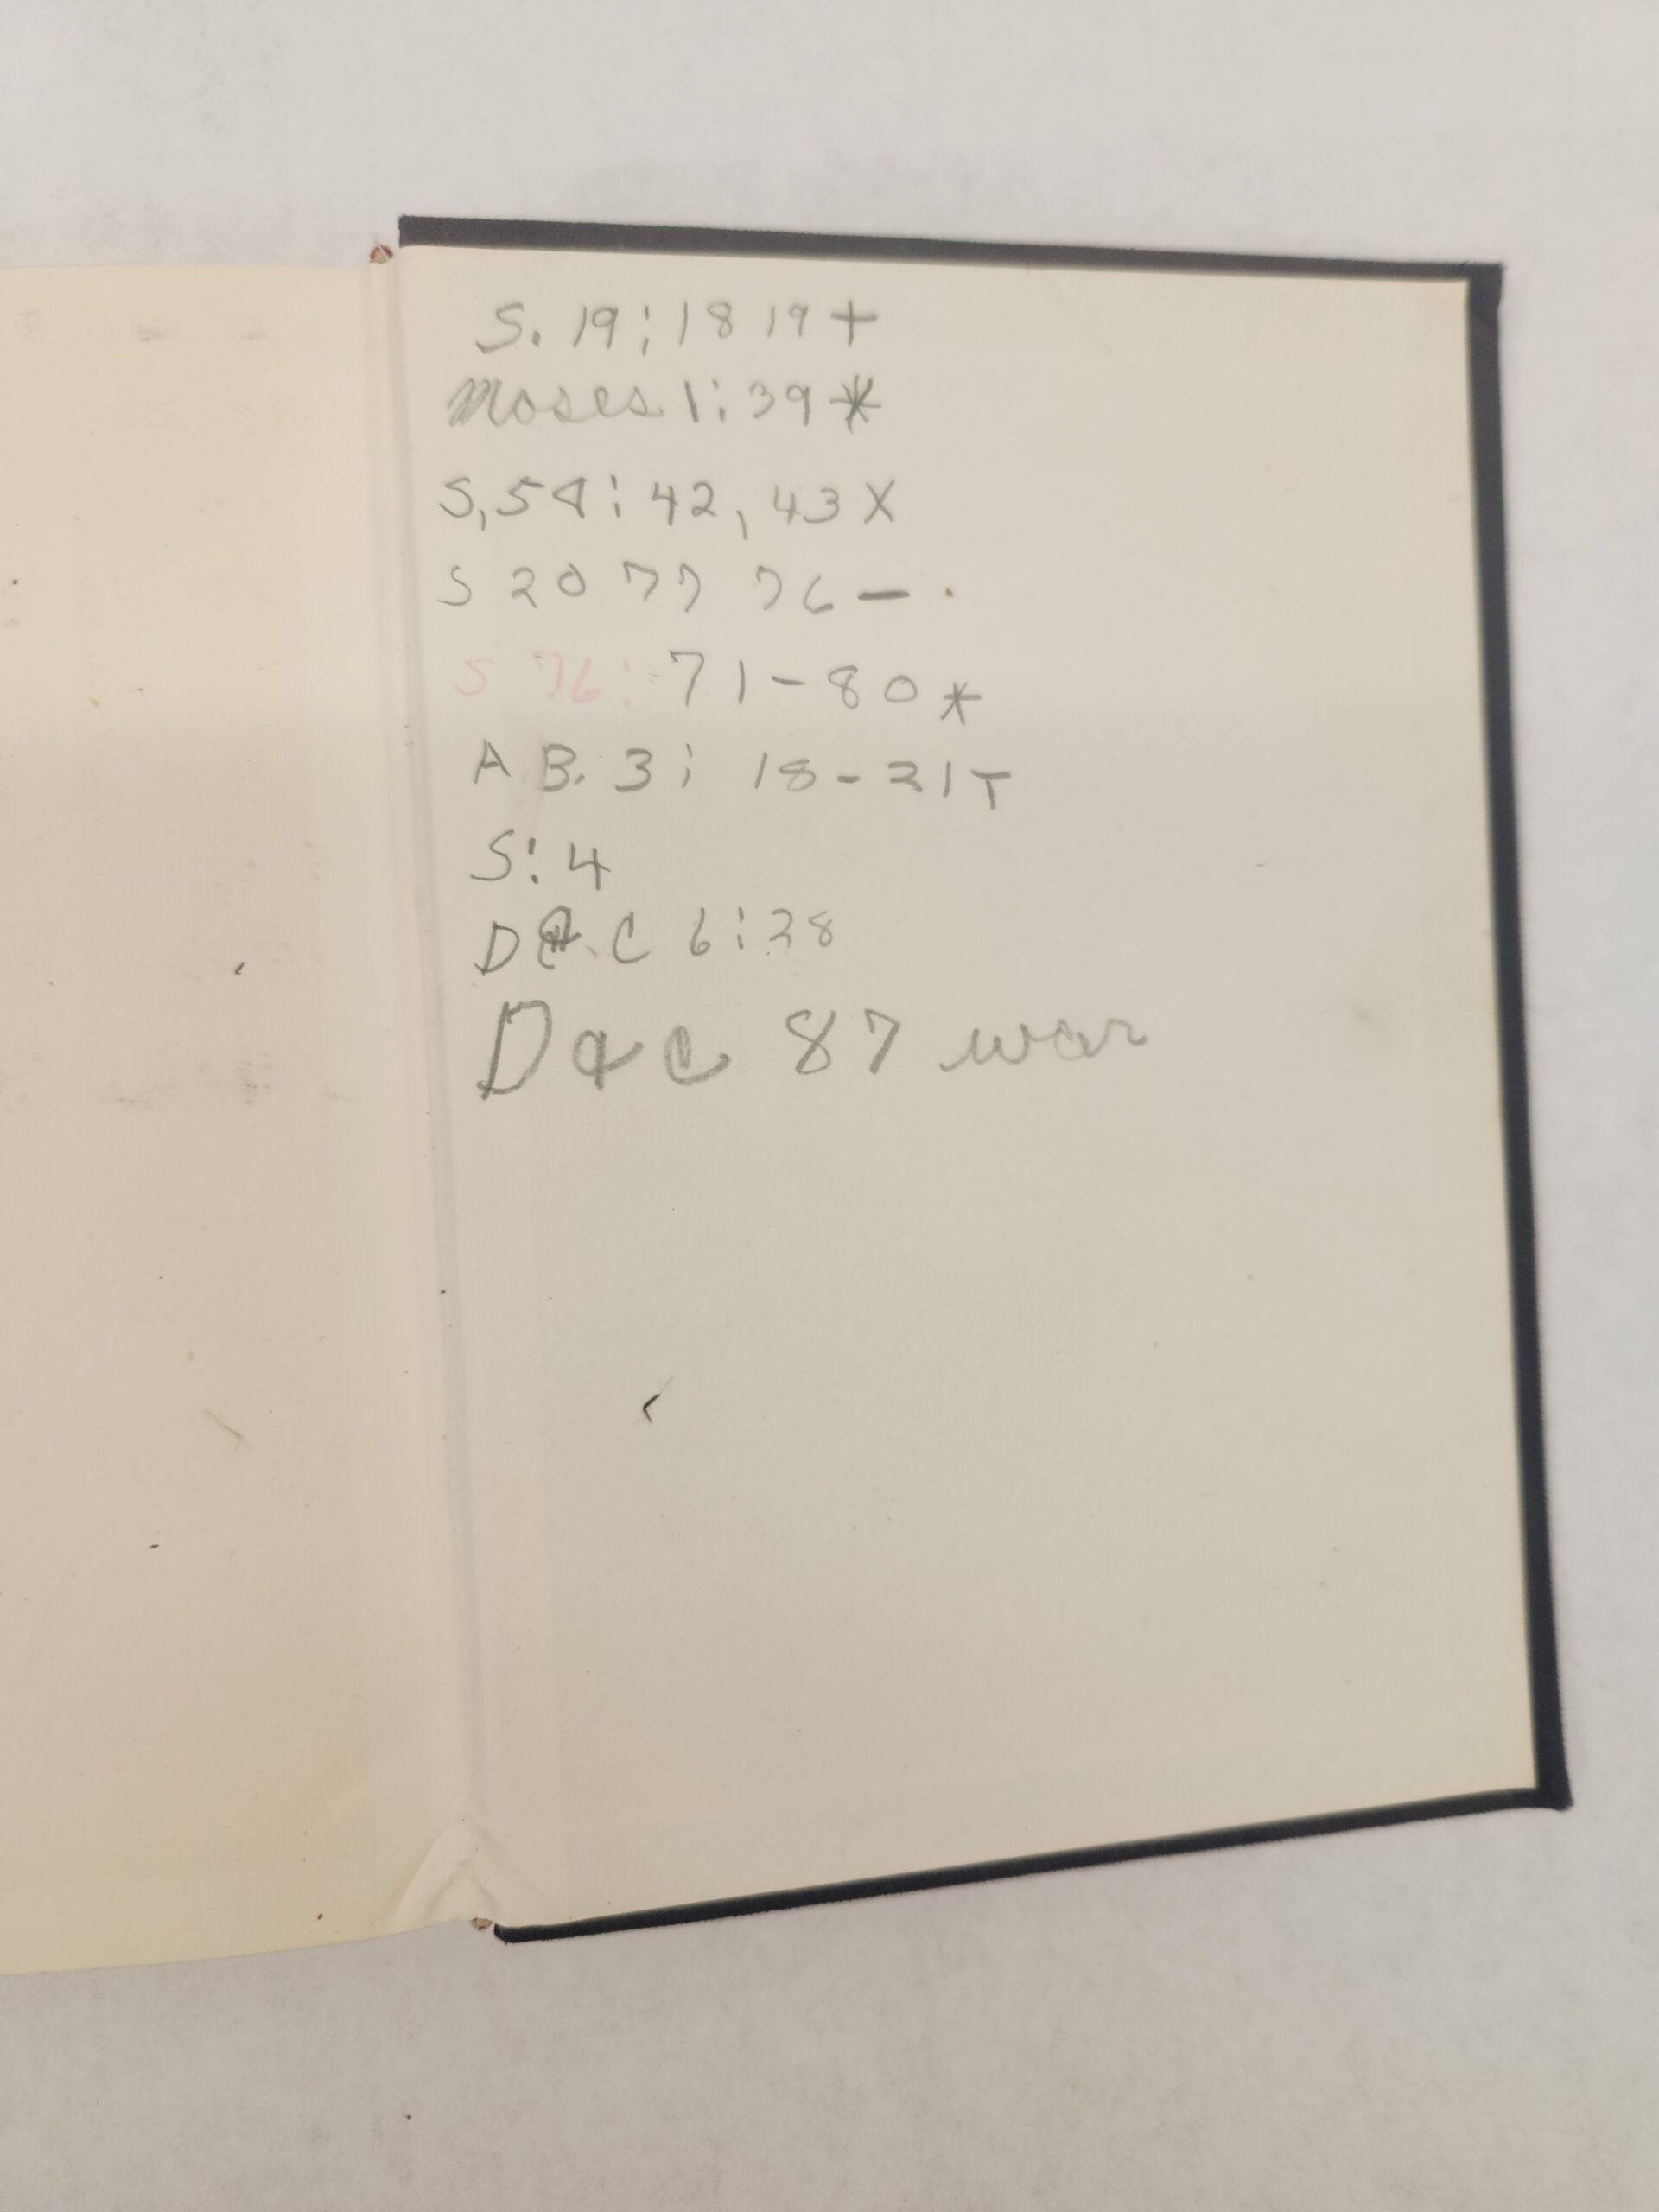 S. 19:18 19+
Moses 1:39*
S, 58: 42, 43 X
S 20 77 76 —
S 76: 71-80*
A B. 3: 18-21T
S: 4
D & C 6:28
D & C 87 war